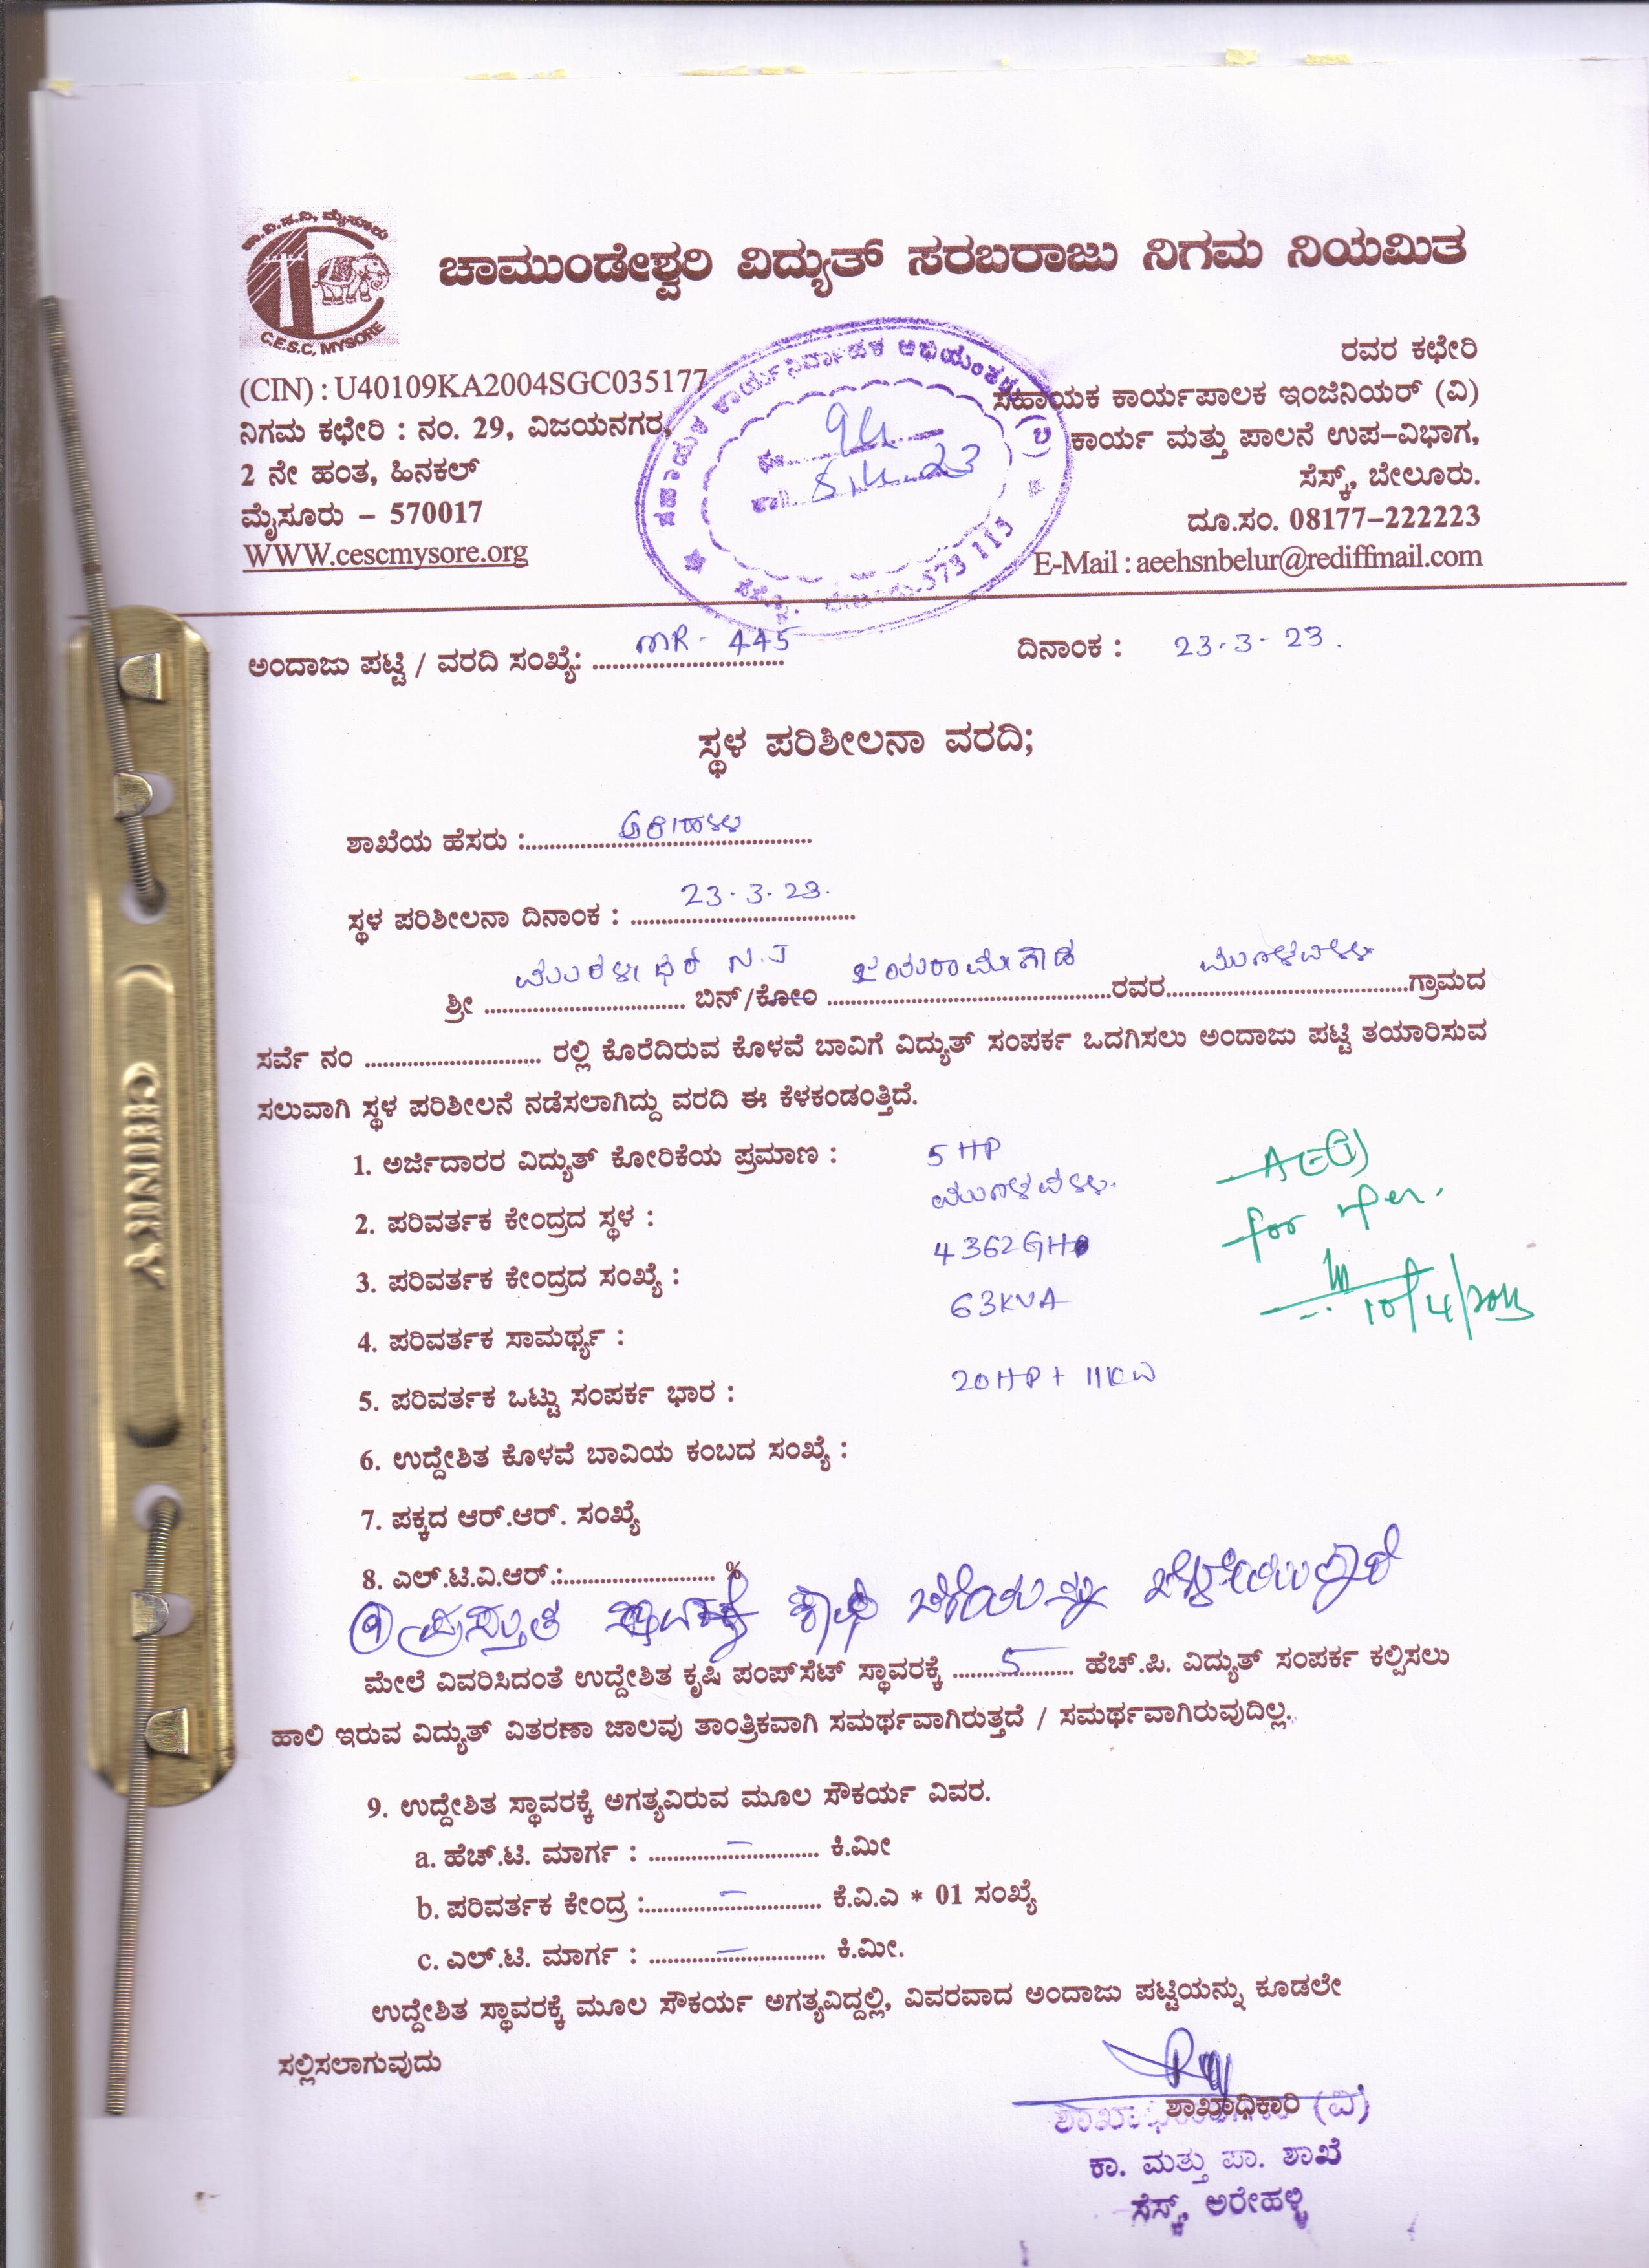 ಚಾ.ವಿ.ಸ.ನಿ, ಮೈಸೂರು
C.E.S.C, MYSORE
ಚಾಮುಂಡೇಶ್ವರಿ ವಿದ್ಯುತ್ ಸರಬರಾಜು ನಿಗಮ ನಿಯಮಿತ
(CIN) : U40109KA2004SGC035177
ನಿಗಮ ಕಛೇರಿ : ನಂ. 29, ವಿಜಯನಗರ,
2 ನೇ ಹಂತ, ಹಿನಕಲ್
ಮೈಸೂರು – 570017
WWW.cescmysore.org
ಸಹಾಯಕ ಕಾರ್ಯನಿರ್ವಾಹಕ ಅಭಿಯಂತರರು (ವಿ)
94
8.4.23
ಸೆಸ್ಕ್, ಬೇಲೂರು-573 115
ರವರ ಕಛೇರಿ
ಸಹಾಯಕ ಕಾರ್ಯಪಾಲಕ ಇಂಜಿನಿಯರ್ (ವಿ)
ಕಾರ್ಯ ಮತ್ತು ಪಾಲನೆ ಉಪ–ವಿಭಾಗ,
ಸೆಸ್ಕ್, ಬೇಲೂರು.
ದೂ.ಸಂ. 08177–222223
E-Mail : aeehsnbelur@rediffmail.com
ಅಂದಾಜು ಪಟ್ಟಿ / ವರದಿ ಸಂಖ್ಯೆ: MR - 445 ದಿನಾಂಕ : 23.3.23.
ಸ್ಥಳ ಪರಿಶೀಲನಾ ವರದಿ;
ಶಾಖೆಯ ಹೆಸರು : ಅರೇಹಳ್ಳಿ
ಸ್ಥಳ ಪರಿಶೀಲನಾ ದಿನಾಂಕ : 23.3.23.
ಶ್ರೀ ಮುರಳೀಧರ N.J ಬಿನ್/ಕೋಂ ಜಯರಾಮೇಗೌಡ ರವರ ಗ್ರಾಮದ
ಸರ್ವೆ ನಂ ........ ರಲ್ಲಿ ಕೊರೆದಿರುವ ಕೊಳವೆ ಬಾವಿಗೆ ವಿದ್ಯುತ್ ಸಂಪರ್ಕ ಒದಗಿಸಲು ಅಂದಾಜು ಪಟ್ಟಿ ತಯಾರಿಸುವ
ಸಲುವಾಗಿ ಸ್ಥಳ ಪರಿಶೀಲನೆ ನಡೆಸಲಾಗಿದ್ದು ವರದಿ ಈ ಕೆಳಕಂಡಂತ್ತಿದೆ.
1. ಅರ್ಜಿದಾರರ ವಿದ್ಯುತ್ ಕೋರಿಕೆಯ ಪ್ರಮಾಣ : 5 HP
2. ಪರಿವರ್ತಕ ಕೇಂದ್ರದ ಸ್ಥಳ :
3. ಪರಿವರ್ತಕ ಕೇಂದ್ರದ ಸಂಖ್ಯೆ : 4362
4. ಪರಿವರ್ತಕ ಸಾಮರ್ಥ್ಯ : 63KVA
for
10/4/2023
5. ಪರಿವರ್ತಕ ಒಟ್ಟು ಸಂಪರ್ಕ ಭಾರ : 20HP + 11KW
6. ಉದ್ದೇಶಿತ ಕೊಳವೆ ಬಾವಿಯ ಕಂಬದ ಸಂಖ್ಯೆ :
7. ಪಕ್ಕದ ಆರ್.ಆರ್. ಸಂಖ್ಯೆ
8. ಎಲ್.ಟಿ.ವಿ.ಆರ್.:........ %
9) ಪ್ರಸ್ತುತ ಕಾಫಿ ಬೆಳೆಯನ್ನು
ಮೇಲೆ ವಿವರಿಸಿದಂತೆ ಉದ್ದೇಶಿತ ಕೃಷಿ ಪಂಪ್‌ಸೆಟ್ ಸ್ಥಾವರಕ್ಕೆ 5 ಹೆಚ್.ಪಿ. ವಿದ್ಯುತ್ ಸಂಪರ್ಕ ಕಲ್ಪಿಸಲು
ಹಾಲಿ ಇರುವ ವಿದ್ಯುತ್ ವಿತರಣಾ ಜಾಲವು ತಾಂತ್ರಿಕವಾಗಿ ಸಮರ್ಥವಾಗಿರುತ್ತದೆ / ಸಮರ್ಥವಾಗಿರುವುದಿಲ್ಲ.
9. ಉದ್ದೇಶಿತ ಸ್ಥಾವರಕ್ಕೆ ಅಗತ್ಯವಿರುವ ಮೂಲ ಸೌಕರ್ಯ ವಿವರ.
a. ಹೆಚ್.ಟಿ. ಮಾರ್ಗ : – ಕಿ.ಮೀ
b. ಪರಿವರ್ತಕ ಕೇಂದ್ರ : – ಕೆ.ವಿ.ಎ * 01 ಸಂಖ್ಯೆ
c. ಎಲ್.ಟಿ. ಮಾರ್ಗ : – ಕಿ.ಮೀ.
ಉದ್ದೇಶಿತ ಸ್ಥಾವರಕ್ಕೆ ಮೂಲ ಸೌಕರ್ಯ ಅಗತ್ಯವಿದ್ದಲ್ಲಿ, ವಿವರವಾದ ಅಂದಾಜು ಪಟ್ಟಿಯನ್ನು ಕೂಡಲೇ
ಸಲ್ಲಿಸಲಾಗುವುದು
ಶಾಖಾಧಿಕಾರಿ (ವಿ)
ಕಾ. ಮತ್ತು ಪಾ. ಶಾಖೆ
ಸೆಸ್ಕ್, ಅರೇಹಳ್ಳಿ
CHINKY